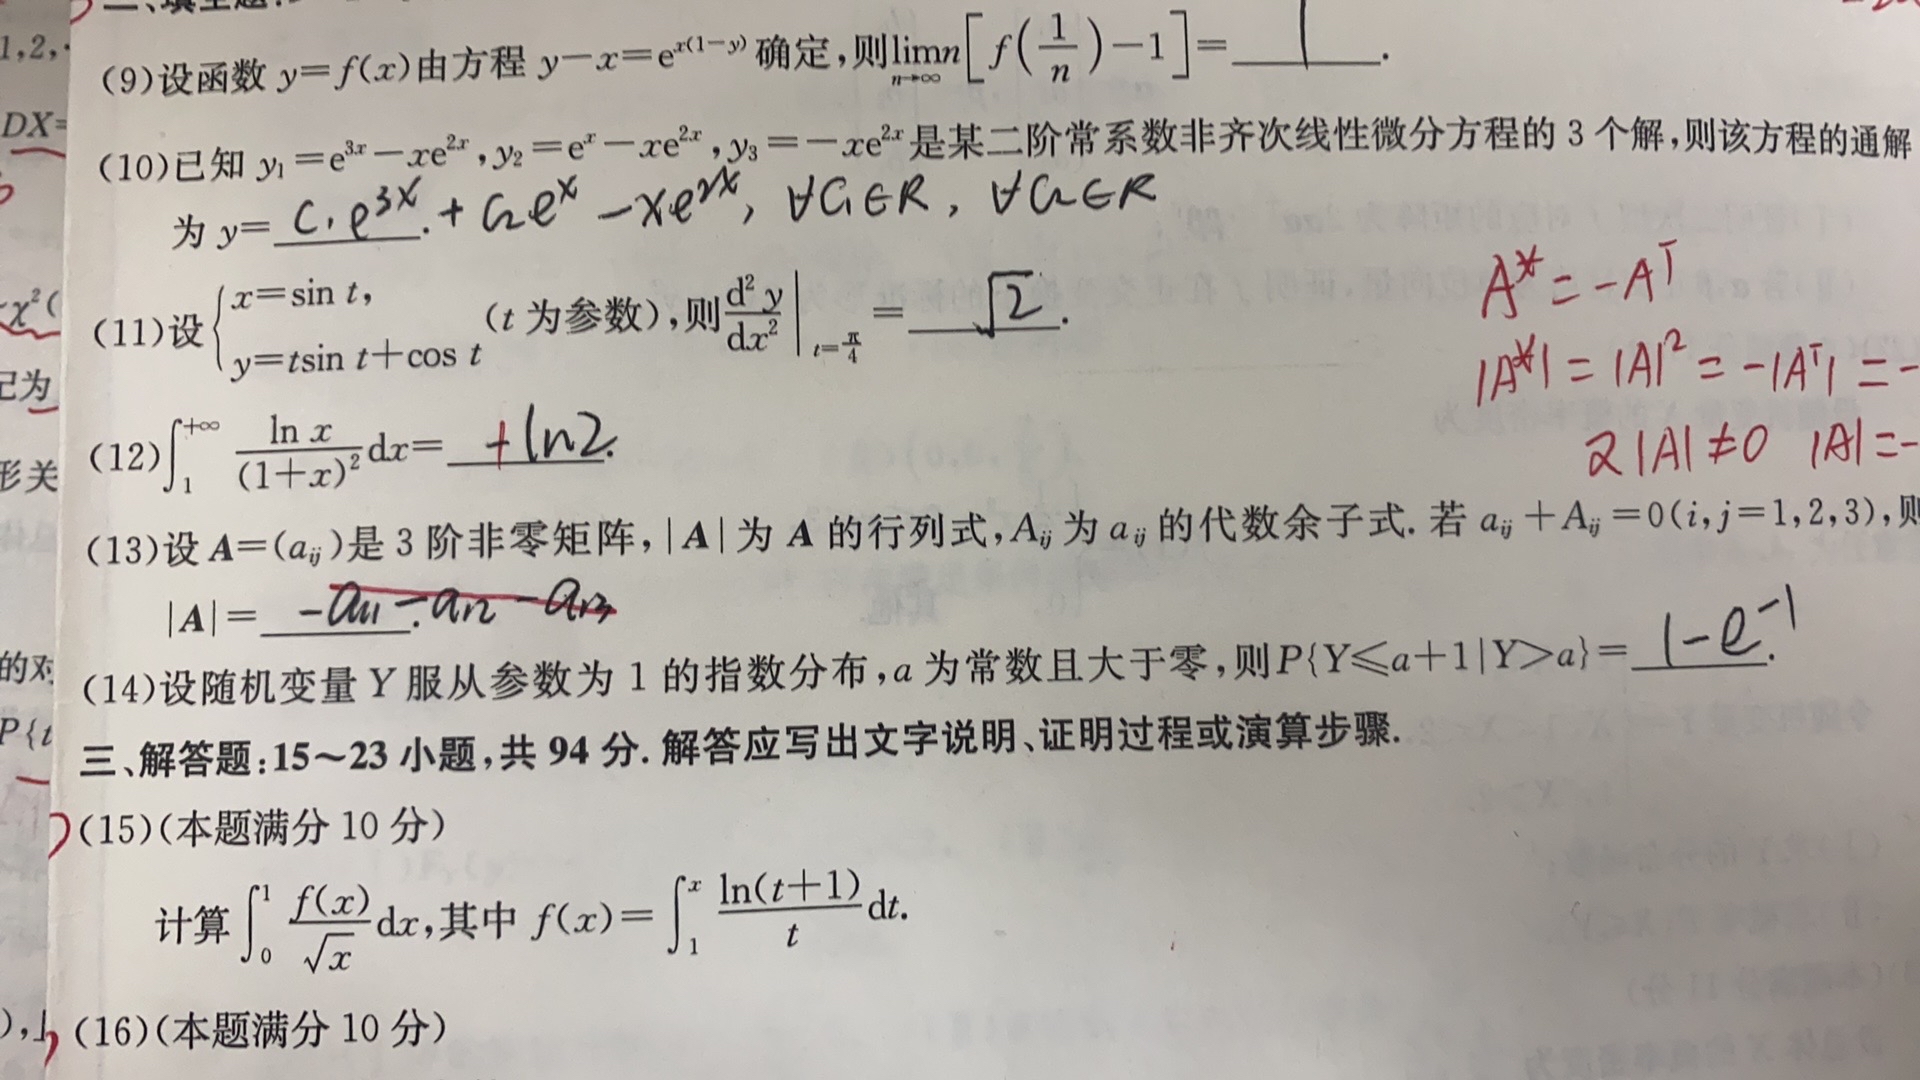 二、填空题:
(9)设函数 y=f(x)由方程 y−x=e^{x(1−y)} 确定,则lim_{n→∞} n[f(1/n)−1]= 1 .
(10)已知 y₁=e^{3x}−xe^{2x},y₂=e^x−xe^{2x},y₃=−xe^{2x}是某二阶常系数非齐次线性微分方程的 3 个解,则该方程的通解
为 y= C₁e^{3x}+C₂e^x−xe^{2x}, ∀C₁∈R, ∀C₂∈R
A*=−Aᵀ
(11)设{x=sin t, y=tsin t+cos t (t 为参数),则d²y/dx²|_{t=π/4}= √2 .
|A*|=|A|²=−|Aᵀ|=−
(12)∫₁^{+∞} ln x/(1+x)² dx= +ln2.
2|A|≠0 |A|=−
(13)设 A=(a_{ij})是 3 阶非零矩阵,|A|为 A 的行列式,A_{ij}为 a_{ij} 的代数余子式.若 a_{ij}+A_{ij}=0(i,j=1,2,3),则
|A|= −a₁₁−a₁₂−a₁₃ .
(14)设随机变量 Y 服从参数为 1 的指数分布,a 为常数且大于零,则P{Y≤a+1|Y>a}= 1−e^{−1} .
三、解答题:15～23 小题,共 94 分.解答应写出文字说明、证明过程或演算步骤.
(15)(本题满分 10 分)
计算∫₀¹ f(x)/√x dx,其中 f(x)=∫₁ˣ ln(t+1)/t dt.
(16)(本题满分 10 分)
1,2,
DX=
χ²(
记为
形关
的对
P{t